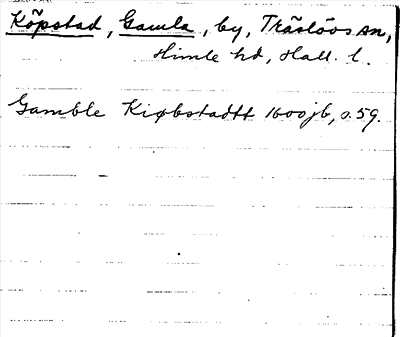 Köpstad, Gamla, by, Träslövs sn,
Himle hd, Hall. l.
Gamble Kiøbstadtt 1600 jb, s. 59.